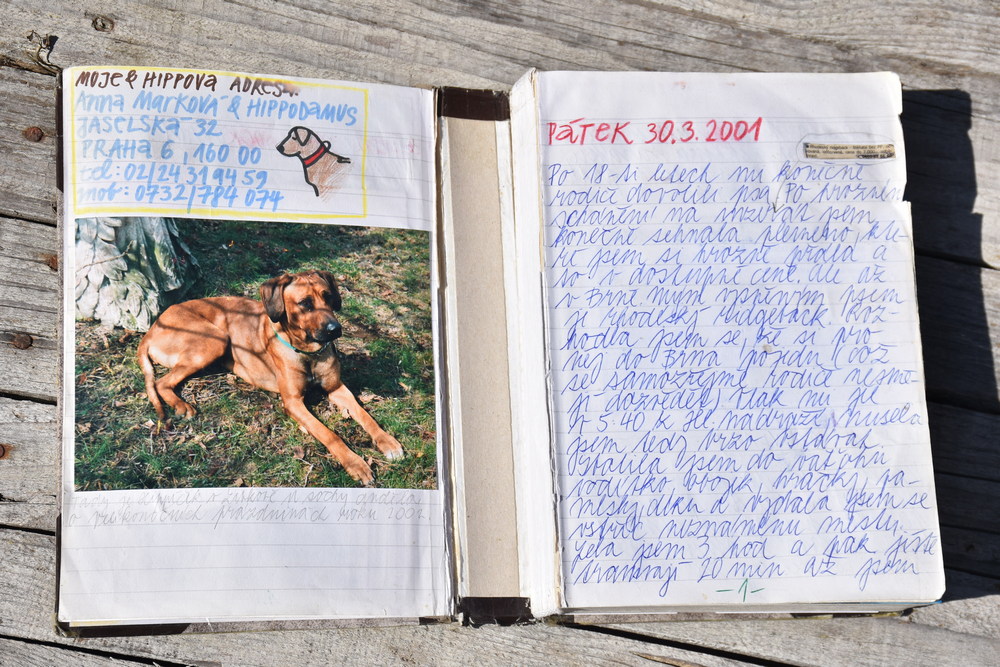 MOJE & HIPPOVA ADRESA:
Anna Marková & HIPPODAMUS
JASELSKÁ 32
PRAHA 6, 160 00
tel: 02/24 31 94 59
mot: 0732/784 074
v Velikonočních prázdninách roku 2001.
PÁTEK 30.3.2001
Po 18-ti letech mi konečně
rodiče dovolili psa. Po hrozném
schánění na inzerát jsem
konečně sehnala plemeno, kte-
ré jsem si hrozně přála a
to v dostupné ceně, ale až
v Brně. Mým vysněným psem
je rhodéský ridgeback. Roz-
hodla jsem se, že si pro
něj do Brna pojedu (což
se samozřejmě rodiče nesmě-
jí dozvědět) Vlak mi jel
v 5:40 z Hl. nádraží, musela
jsem tedy brzo vstávat.
Sbalila jsem do batohu
vodítko, obojek, hračky,
deku a vydala jsem se
vstříc neznámému městu.
Jela jsem 3 hod a pak ještě
tramvají 20 min až jsem
-1-